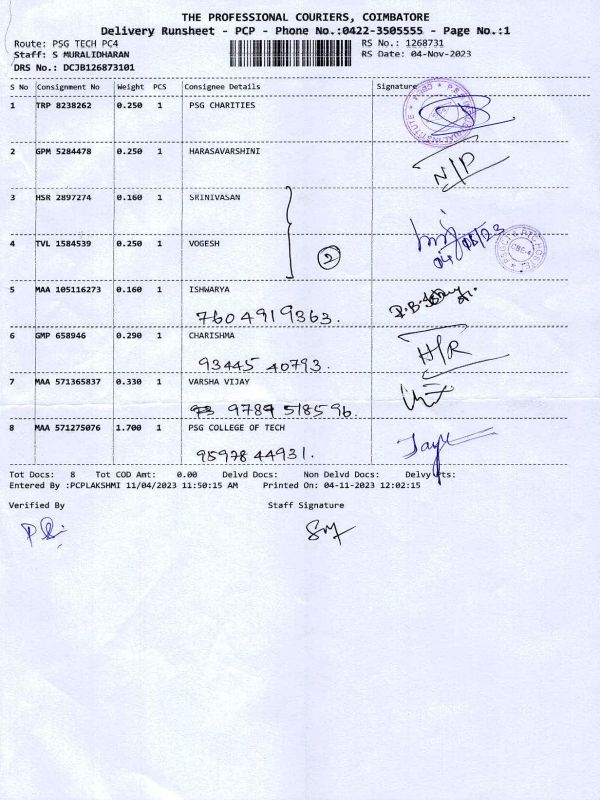 THE PROFESSIONAL COURIERS, COIMBATORE
Delivery Runsheet - PCP - Phone No.:0422-3505555 - Page No.:1
Route: PSG TECH PC4 RS No.: 1268731
Staff: S MURALIDHARAN RS Date: 04-Nov-2023
DRS No.: DCJB126873101
S No Consignment No Weight PCS Consignee Details Signature
1 TRP 8238262 0.250 1 PSG CHARITIES
2 GPM 5284478 0.250 1 HARASAVARSHINI
N/P
3 HSR 2897274 0.160 1 SRINIVASAN
4 TVL 1584539 0.250 1 VOGESH
2
5 MAA 105116273 0.160 1 ISHWARYA
7604919363.
6 GMP 658946 0.290 1 CHARISHMA
H/R
93445 40793.
7 MAA 571365837 0.330 1 VARSHA VIJAY
9789 518596.
8 MAA 571275076 1.700 1 PSG COLLEGE OF TECH
95978 44931.
Tot Docs: 8 Tot COD Amt: 0.00 Delvd Docs: Non Delvd Docs: Delvy Pts:
Entered By :PCPLAKSHMI 11/04/2023 11:50:15 AM Printed On: 04-11-2023 12:02:15
Verified By Staff Signature